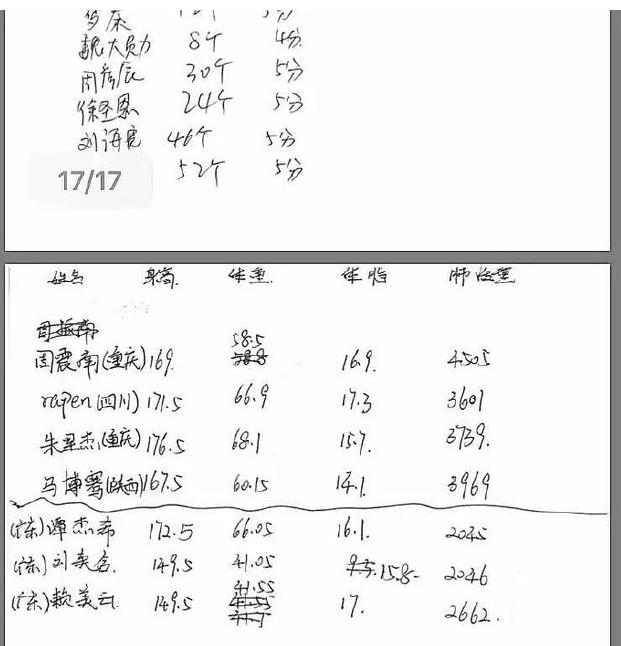 魏大勋 8个 4分
周彦辰 30个 5分
徐圣恩 24个 5分
刘海宽 46个 5分
17/17 52个 5分
姓名 身高 体重 体脂 肺活量
58.5
周震南(重庆)169. 16.9. 4505
rapen(四川) 171.5 66.9 17.3 3601
朱星杰(重庆) 176.5 68.1 15.7. 3739.
马博骞(陕西)167.5 60.15 14.1. 3969
(广东)谭杰希 172.5 66.05 16.1. 2045
(广东)刘美含. 149.5 41.05 15.8- 2046
41.55
(广东)赖美云. 149.5 17. 2662.